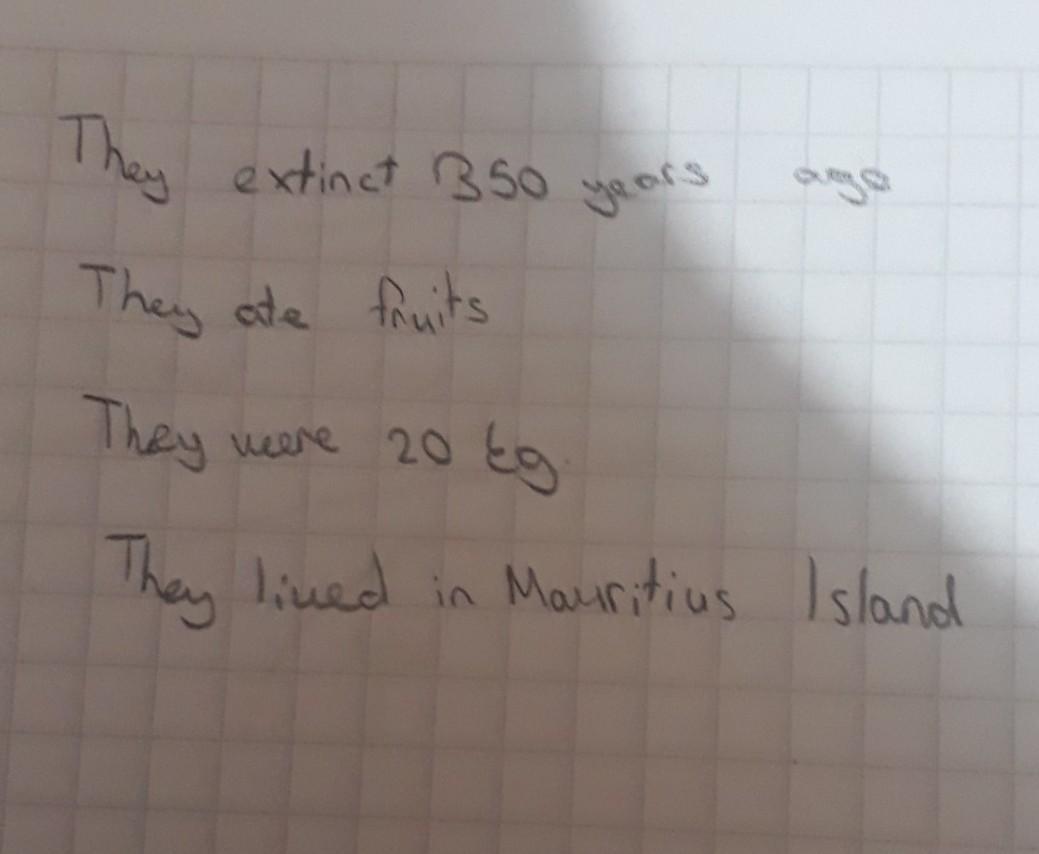 They extinct 350 years ago
They ate fruits
They were 20 kg.
They lived in Mauritius Island